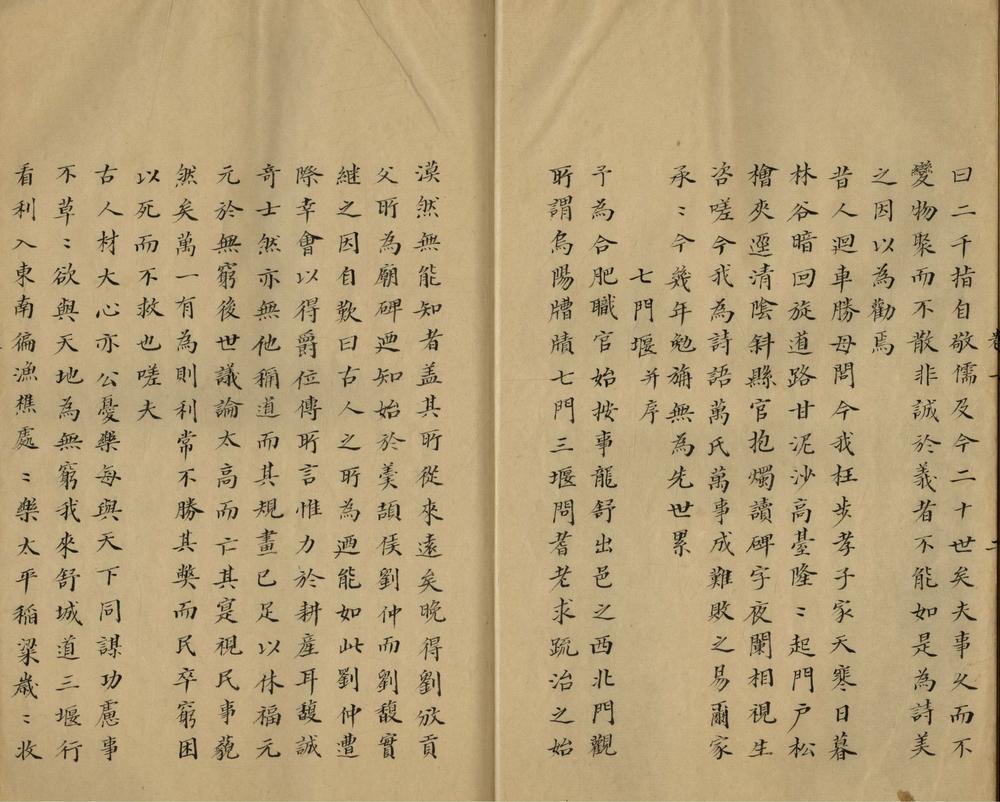 曰二千指自敬儒及今二十世矣夫事久而不
變物聚而不散非誠於義者不能如是為詩美
之因以為勸焉
昔人迴車勝母閭今我枉步孝子家天寒日暮
林谷暗回旋道路甘泥沙高臺隆〻起門戶松
檜夾逕清陰斜縣官抱燭讀碑字夜闌相視生
咨嗟今我為詩語萬氏萬事成難敗之易爾家
承〻今幾年勉旃無為先世累
七門堰并序
予為合肥職官始按事龍舒出邑之西北門觀
所謂烏陽𤖆牘七門三堰問耆老求疏治之始
漠然無能知者盖其所從來遠矣晚得劉攽貢
父所為廟碑迺知始於羹頡侯劉仲而劉馥實
継之因自歎曰古人之所為迺能如此劉仲遭
際幸會以得爵位傳所言惟力於耕產耳馥誠
奇士然亦無他稱道而其規畫已足以休福元
元於無窮後世議論太高而亡其寔視民事藐
然矣萬一有為則利常不勝其獘而民卒窮困
以死而不救也嗟夫
古人材大心亦公憂樂每與天下同謀功慮事
不草〻欲與天地為無窮我來舒城道三堰行
看利入東南徧漁樵處〻樂太平稲粱歲〻收